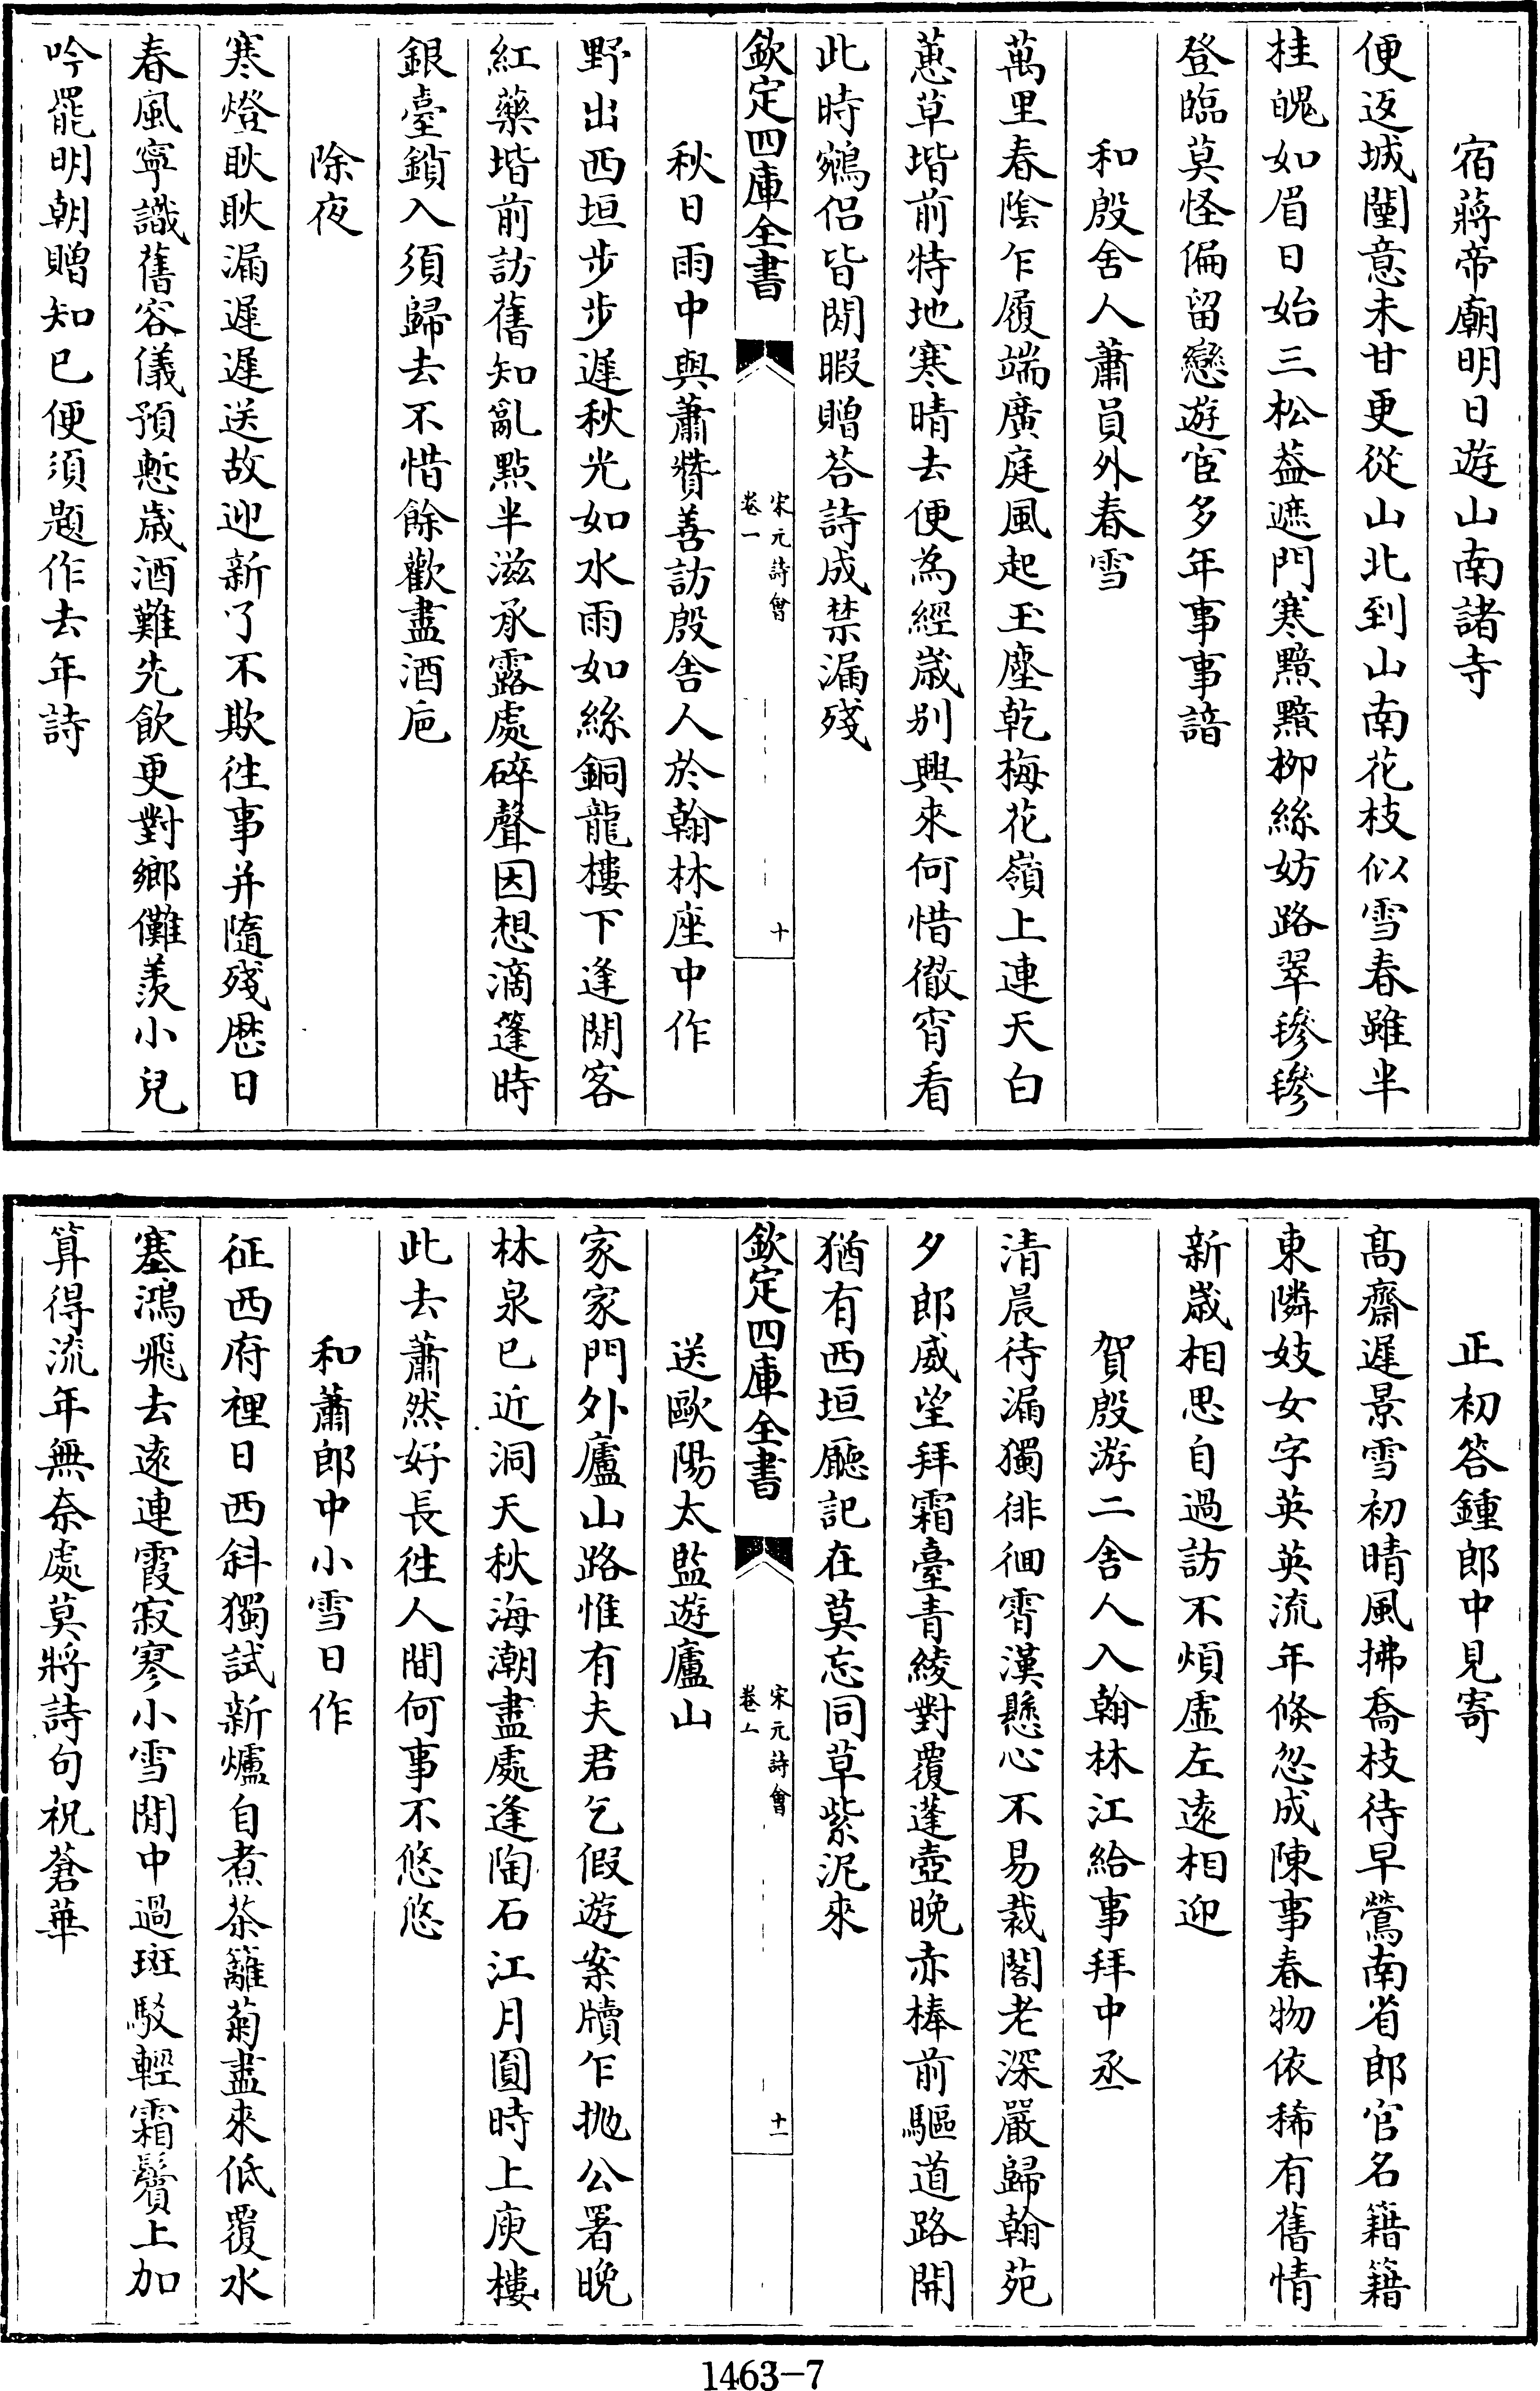 宿蔣帝廟明日遊山南諸寺
便返城闉意未甘更從山北到山南花枝似雪春雖半
桂魄如眉日始三松葢遮門寒黯黯柳絲妨路翠毿毿
登臨莫怪偏留戀遊宦多年事事諳
和殷舍人蕭員外春雪
萬里春陰乍履端廣庭風起玉塵乾梅花嶺上連天白
蕙草堦前特地寒晴去便為經嵗别興來何惜徹宵看
此時鵷侣皆閒暇贈荅詩成禁漏殘
欽定四庫全書
宋元詩會
卷一
十
秋日雨中與蕭贊善訪殷舍人於翰林座中作
野出西垣步步遲秋光如水雨如絲銅龍樓下逢閒客
紅藥堦前訪舊知亂點半滋承露處碎聲因想滴篷時
銀臺鎖入須歸去不惜餘歡盡酒巵
除夜
寒燈耿耿漏遲遲送故迎新了不欺徃事并隨殘厯日
春風寧識舊容儀預慙嵗酒難先飲更對鄉儺羨小兒
吟罷明朝贈知已便須題作去年詩
正初答鍾郎中見寄
髙齋遲景雪初晴風拂喬枝待早鶯南省郎官名籍籍
東隣妓女字英英流年倐忽成陳事春物依稀有舊情
新嵗相思自過訪不煩虛左逺相迎
賀殷游二舍人入翰林江給事拜中丞
清晨待漏獨徘徊霄漢懸心不易裁閣老深嚴歸翰苑
夕郎威望拜霜臺青綾對覆蓬壺晩赤棒前驅道路開
猶有西垣廳記在莫忘同草紫泥來
欽定四庫全書
宋元詩會
卷一
十一
送歐陽太監遊廬山
家家門外廬山路惟有夫君乞假遊案牘乍抛公署晩
林泉已近洞天秋海潮盡處逢陶石江月圓時上庾樓
此去蕭然好長徃人間何事不悠悠
和蕭郎中小雪日作
征西府裡日西斜獨試新爐自煮茶籬菊盡來低覆水
塞鴻飛去逺連霞寂寥小雪閒中過斑駁輕霜鬢上加
算得流年無奈處莫將詩句祝蒼華
1463-7